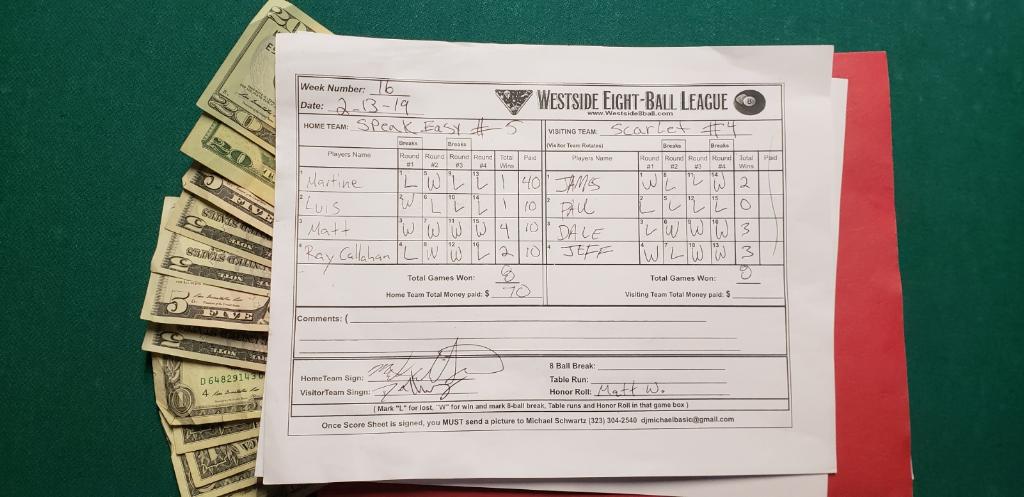 Week Number: 16
Date: 2-13-19
WESTSIDE EIGHT-BALL LEAGUE
www.Westside8ball.com
HOME TEAM: Speak Easy #5
VISITING TEAM: Scarlet #4
(Visitor Team Rotates)
Breaks Breaks Breaks Breaks
Players Name Round #1 Round #2 Round #3 Round #4 Total Wins Paid Players Name Round #1 Round #2 Round #3 Round #4 Total Wins Paid
1 Martine 1 L 5 W 9 L 13 L 1 40 1 JAMES 1 W 8 L 11 L 14 W 2
2 Luis 2 W 6 L 10 L 14 L 1 10 2 PAUL 2 L 5 L 12 L 15 L 0
3 Matt 3 W 7 W 11 W 15 W 4 10 3 DALE 3 L 6 W 9 W 16 W 3
4 Ray Callahan 4 L 8 W 12 W 16 L 2 10 4 JEFF 4 W 7 L 10 W 13 W 3
Total Games Won: 8
Total Games Won: 8
Home Team Total Money paid: $ 70
Visiting Team Total Money paid: $
Comments: (
HomeTeam Sign:
VisitorTeam Singn:
8 Ball Break:
Table Run:
Honor Roll: Matt W.
( Mark "L" for lost, "W" for win and mark 8-ball break, Table runs and Honor Roll in that game box )
Once Score Sheet is signed, you MUST send a picture to Michael Schwartz (323) 304-2540 djmichaelbasic@gmail.com
20
20
5 FIVE
5
5
D 6482914
4